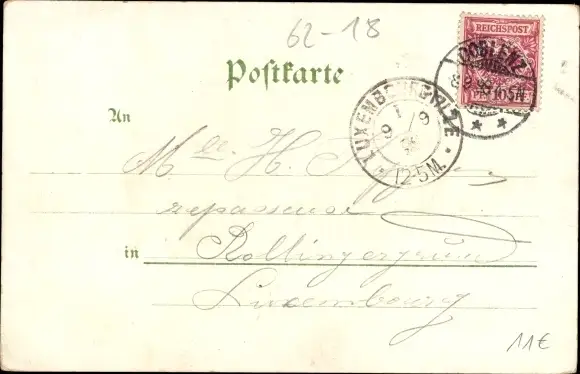 62-18
REICHSPOST
COBLENZ
Postkarte
An
LUXEMBOURG-VILLE
1
9 9
12-5 M.
Mlle. H.
repasseuse
in Rollingergrund
Luxembourg
11€